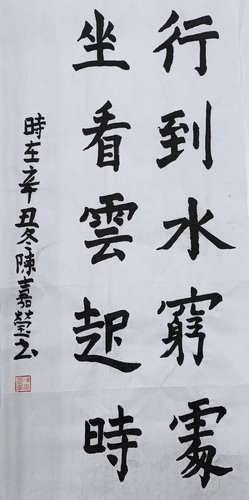 行到水窮處
坐看雲起時
時在辛丑冬陳嘉瑩书